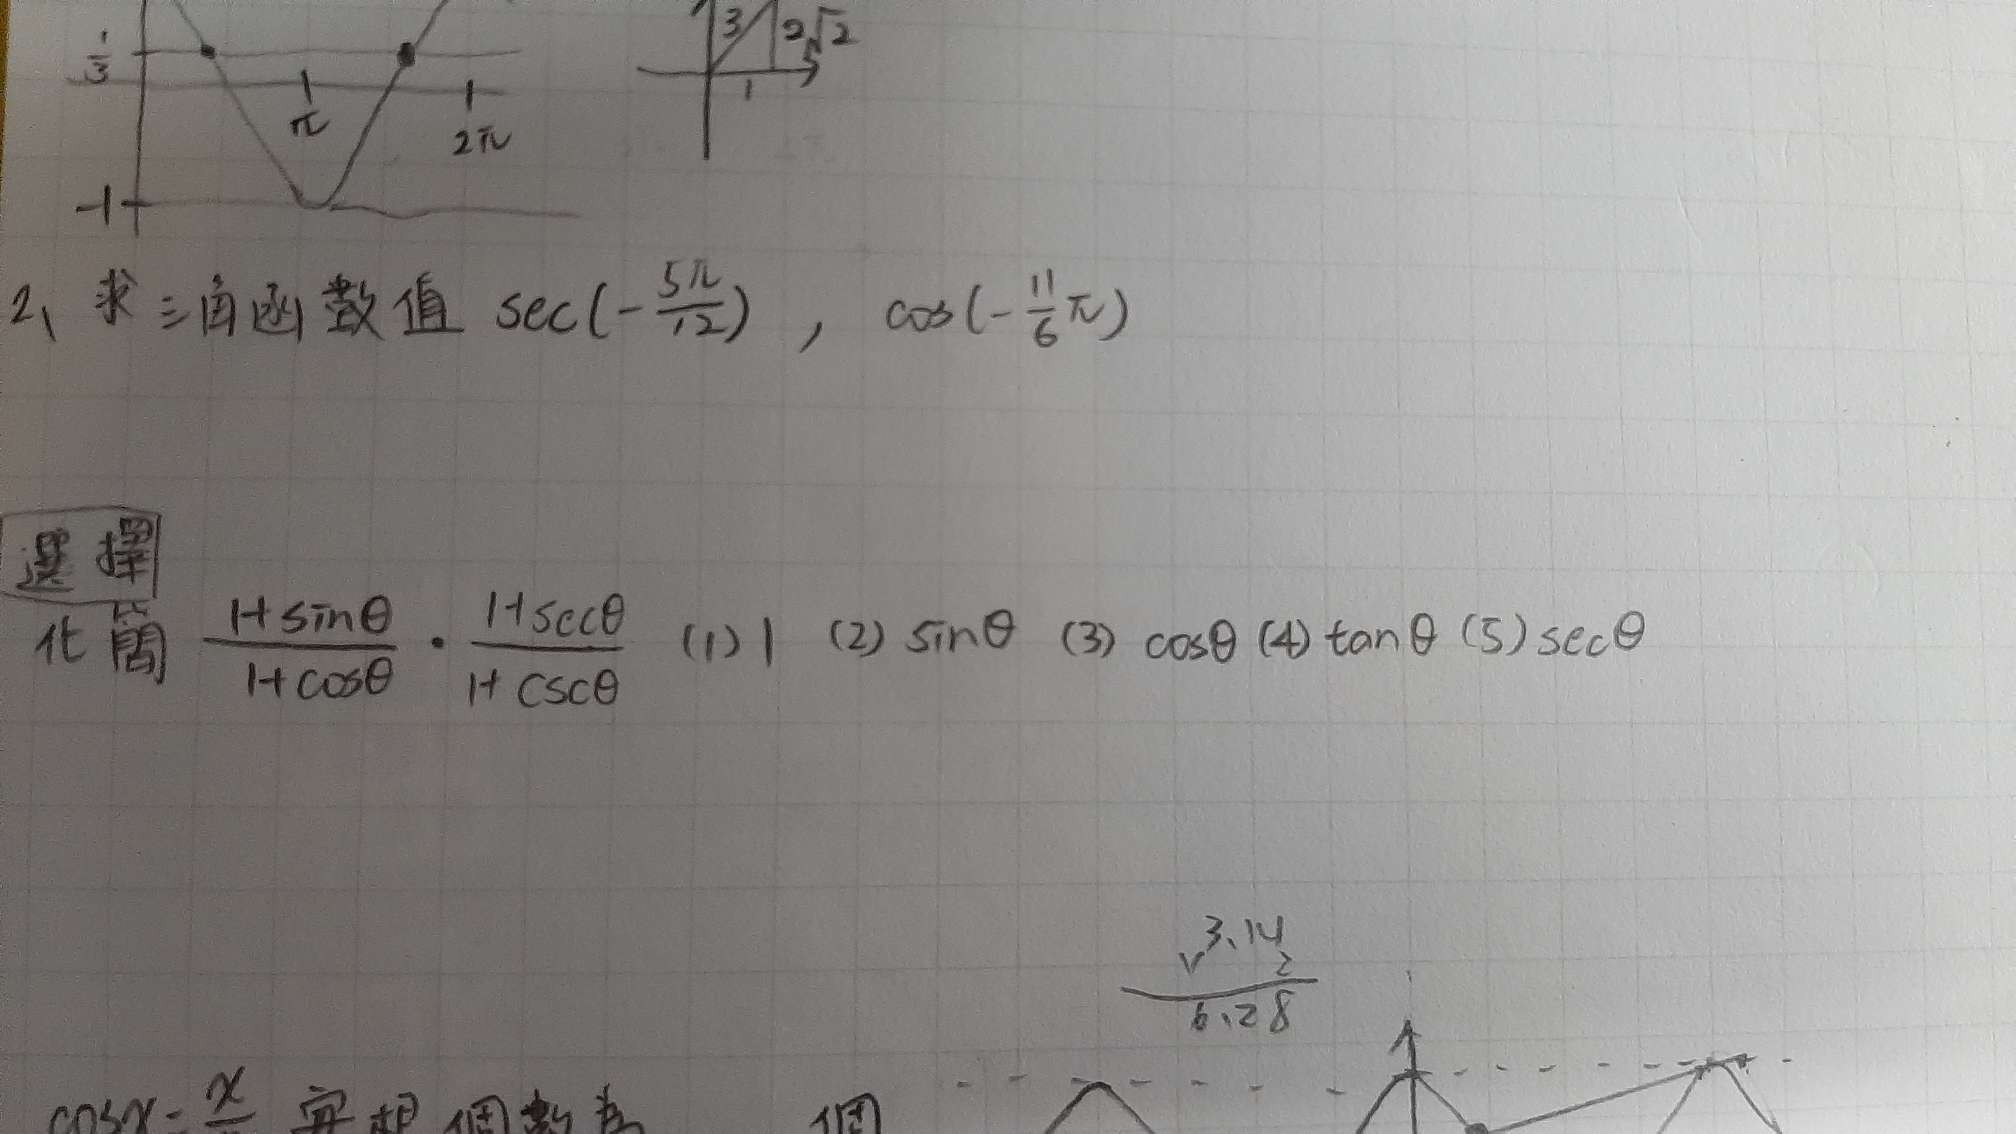 1/3
π
2π
-1
3
2√2
1
2、求三角函數值 sec(-5π/12) , cos(-11/6 π)
選擇
化簡 (1+sinθ)/(1+cosθ) · (1+secθ)/(1+cscθ) (1) 1 (2) sinθ (3) cosθ (4) tanθ (5) secθ
3.14
2
6.28
cosx = x 實根個數為 個